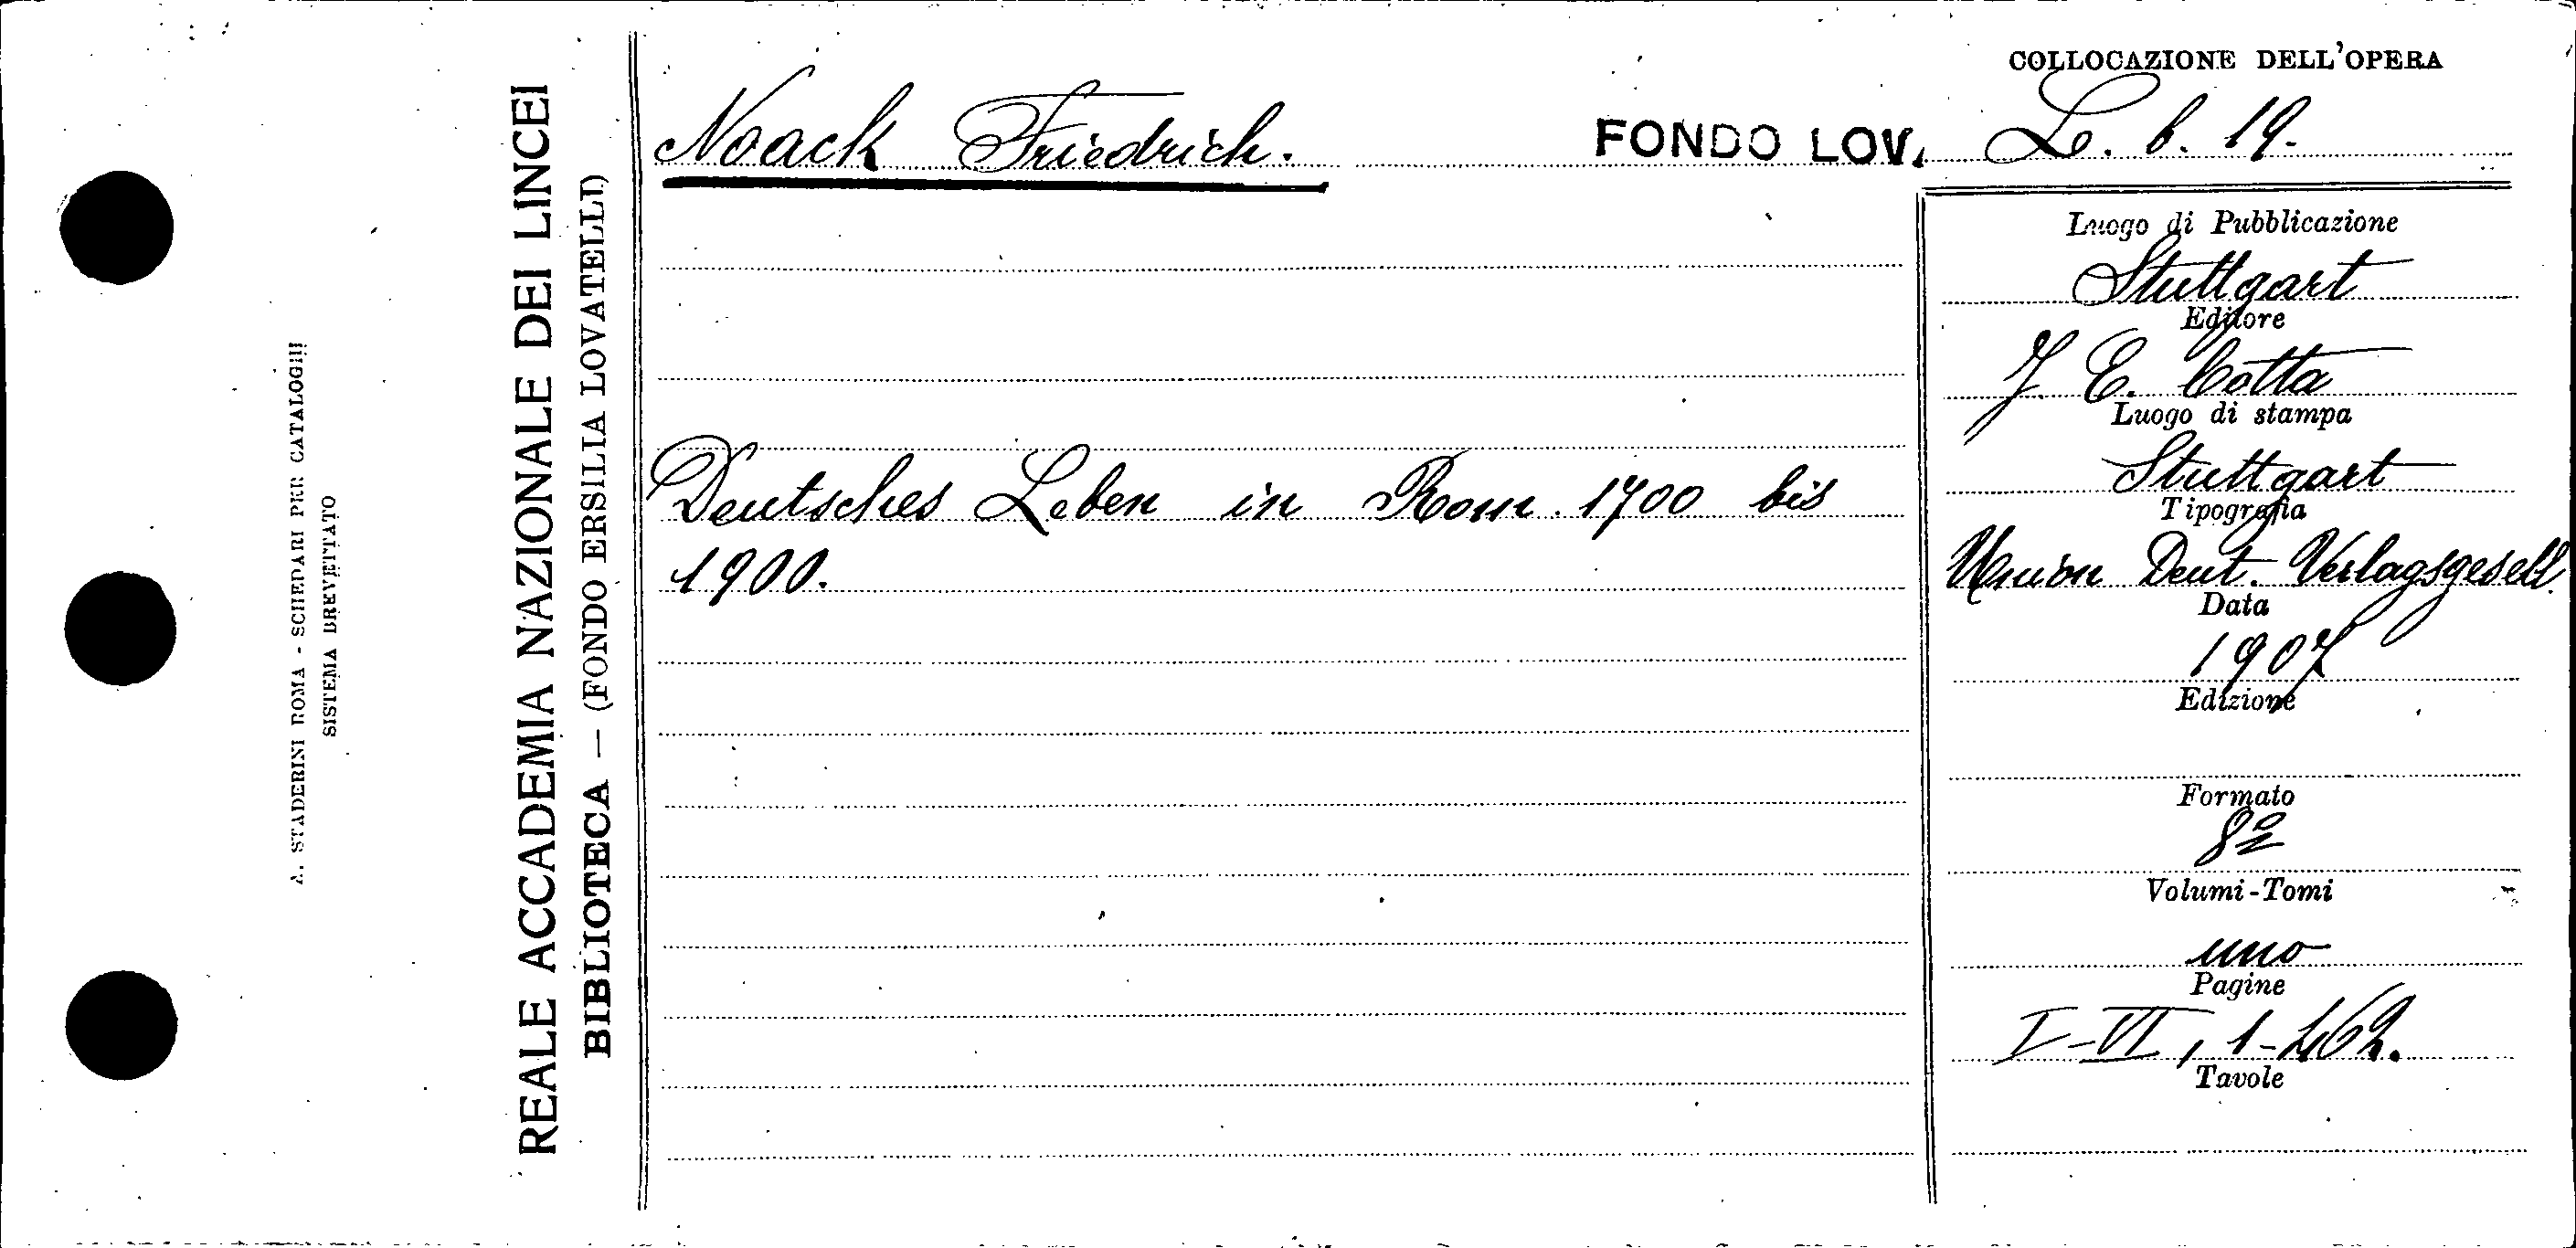 A. STADERINI ROMA - SCHEDARI PER CATALOGHI
SISTEMA BREVETTATO
REALE ACCADEMIA NAZIONALE DEI LINCEI
BIBLIOTECA — (FONDO ERSILIA LOVATELLI)
Noack Friedrich.
FONDO LOV.
COLLOCAZIONE DELL'OPERA
L. b. 19.
Deutsches Leben in Rom. 1700 bis
1900.
Luogo di Pubblicazione
Stuttgart
Editore
J. E. Cotta
Luogo di stampa
Stuttgart
Tipografia
Union Deut. Verlagsgesell.
Data
1907
Edizione
Formato
8º
Volumi-Tomi
uno
Pagine
I-VI, 1-462.
Tavole